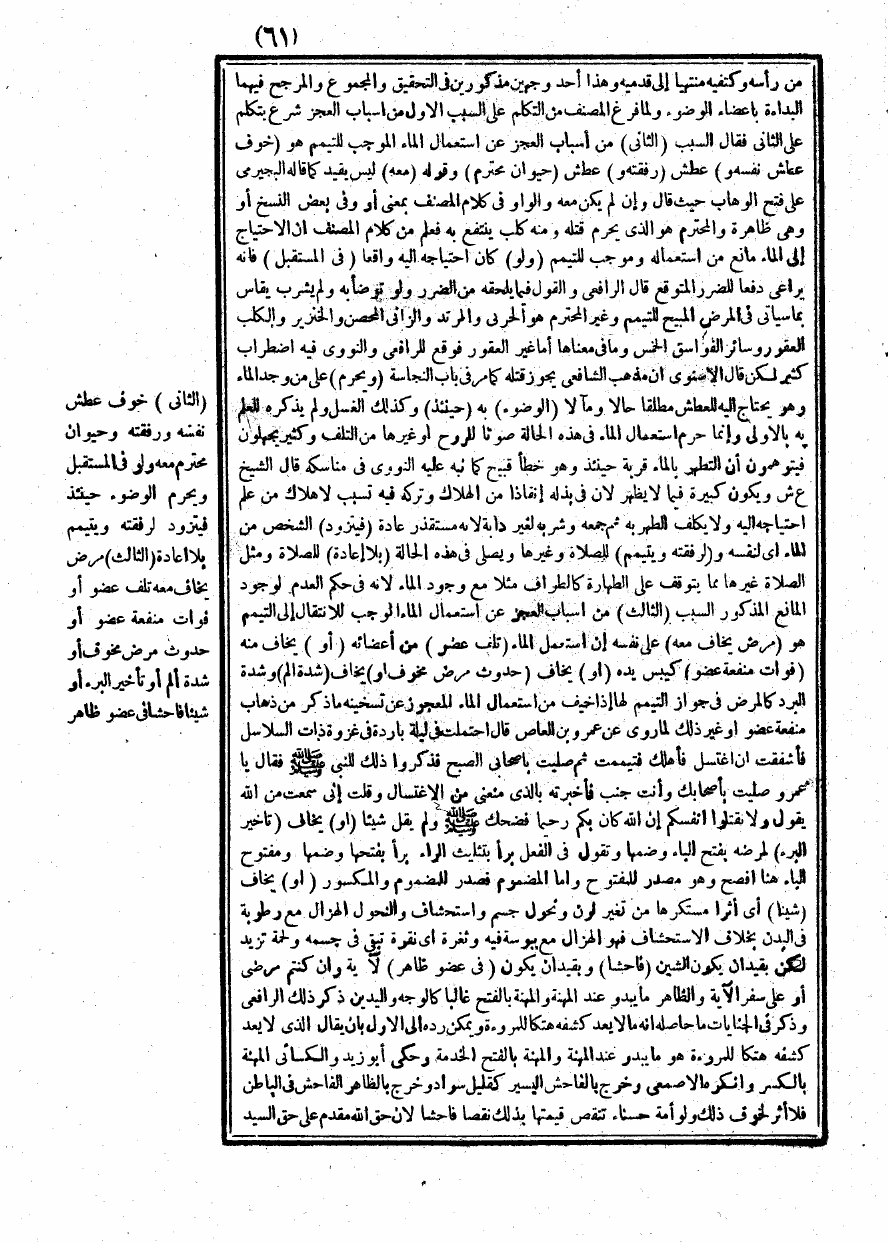 (٦١)
من رأسه وكتفيه منتهيا إلى قدميه وهذا أحد وجهين مذكورين فى التحقيق والمجموع والمرجح فيهما
البداءة باعضاء الوضوء ولما فرغ المصنف من التكلم على السبب الاول من اسباب العجز شرع يتكلم
على الثانى فقال السبب (الثانى) من أسباب العجز عن استعمال الماء الموجب للتيمم هو (خوف
عطش نفسه و) عطش (رفقته و) عطش (حيوان محترم) وقوله (معه) ليس بقيد كما قاله البجيرمى
على فتح الوهاب حيث قال وإن لم يكن معه والواو فى كلام المصنف بمعنى أو وفى بعض النسخ أو
وهى ظاهرة والمحترم هو الذى يحرم قتله ومنه كلب ينتفع به فعلم من كلام المصنف ان الاحتياج
إلى الماء مانع من استعماله وموجب للتيمم (ولو) كان احتياجه اليه واقعا (فى المستقبل) فانه
يراعى دفعا للضرر المتوقع قال الرافعى والقول فيما يلحقه من الضرر ولو توضأ به ولم يشرب يقاس
بماسياتى فى المرض المبيح للتيمم وغير المحترم هو الحربى والمرتد والزانى المحصن والخنزير والكلب
العقور وسائر الفواسق الخمس وما فى معناها أما غير العقور فوقع للرافعى والنووى فيه اضطراب
كثير لكن قال الاسنوى ان مذهب الشافعى يجوز قتله كما مر فى باب النجاسة (ويحرم) على من وجد الماء
وهو يحتاج اليه للعطش مطلقا حالا ومآلا (الوضوء) به (حينئذ) وكذلك الغسل ولم يذكره للعلم
به بالاولى وإنما حرم استعمال الماء فى هذه الحالة صونا للروح أو غيرها من التلف وكثير يجهلون
فيتوهمون أن التطهر بالماء قربة حينئذ وهو خطأ قبيح كما نبه عليه النووى فى مناسكه قال الشيخ
ع ش ويكون كبيرة فيما لا يظهر لان فى بذله إنقاذا من الهلاك وتركه فيه تسبب لاهلاك من علم
احتياجه اليه ولا يكلف الطهر به ثم جمعه وشربه لغير دابة لانه مستقذر عادة (فيتزود) الشخص من
الماء اى لنفسه و(لرفقته ويتيمم) للصلاة وغيرها ويصلى فى هذه الحالة (بلا إعادة) للصلاة ومثل
الصلاة غيرها مما يتوقف على الطهارة كالطواف مثلا مع وجود الماء لانه فى حكم العدم لوجود
المانع المذكور السبب (الثالث) من اسباب العجز عن استعمال الماء الموجب للانتقال إلى التيمم
هو (مرض يخاف معه) على نفسه إن استعمل الماء (تلف عضو) من أعضائه (أو) يخاف منه
(فوات منفعة عضو) كيبس يده (او) يخاف (حدوث مرض مخوف او) يخاف (شدة الم) وشدة
البرد كالمرض فى جواز التيمم لها إذا خيف من استعمال الماء للعجوز عن تسخينه ما ذكر من ذهاب
منفعة عضو او غير ذلك لما روى عن عمرو بن العاص قال احتلمت فى ليلة باردة فى غزوة ذات السلاسل
فأشفقت ان اغتسل فأهلك فتيممت ثم صليت باصحابى الصبح فذكروا ذلك للنبى ﷺ فقال يا
عمرو صليت بأصحابك وأنت جنب فأخبرته بالذى منعنى من الاغتسال وقلت إنى سمعت من الله
يقول ولا تقتلوا انفسكم إن الله كان بكم رحيما فضحك ﷺ ولم يقل شيئا (او) يخاف (تاخير
البرء) لمرضه بفتح الباء وضمها وتقول فى الفعل برأ بتثليث الراء برأ بفتحها وضمها ومفتوح
الباء هنا افصح وهو مصدر للمفتوح واما المضموم فصدر للمضموم والمكسور (او) يخاف
(شينا) أى أثرا مستكرها من تغير لون ونحول جسم واستحشاف والنحول الهزال مع رطوبة
فى البدن بخلاف الاستحشاف فهو الهزال مع يبوسة فيه وثغرة اى نقرة تبقى فى جسمه ولحمة تزيد
لكن بقيد ان يكون الشين (فاحشا) وبقيد ان يكون (فى عضو ظاهر) لآية وان كنتم مرضى
أو على سفر الآية والظاهر ما يبدو عند المهنة والمهنة بالفتح غالبا كالوجه واليدين ذكر ذلك الرافعى
وذكر فى الجنايات ما حاصله انه ما لا يعد كشفه هتكا للمروءة ويمكن رده إلى الاول بان يقال الذى لا يعد
كشفه هتكا للمروءة هو ما يبدو عند المهنة والمهنة بالفتح الخدمة وحكى أبو زيد والكسائى المهنة
بالكسر وانكره الاصمعى وخرج بالفاحش اليسير كقليل سواد وخرج بالظاهر الفاحش فى الباطن
فلا أثر لخوف ذلك ولو أمة حسناء تنقص قيمتها بذلك نقصا فاحشا لان حق الله مقدم على حق السيد
(الثانى) خوف عطش
نفسه ورفقته وحيوان
محترم معه ولو فى المستقبل
ويحرم الوضوء حينئذ
فيتزود لرفقته ويتيمم
بلا اعادة (الثالث) مرض
يخاف معه تلف عضو أو
فوات منفعة عضو أو
حدوث مرض مخوف أو
شدة ألم أو تأخير البرء أو
شينا فاحشا فى عضو ظاهر